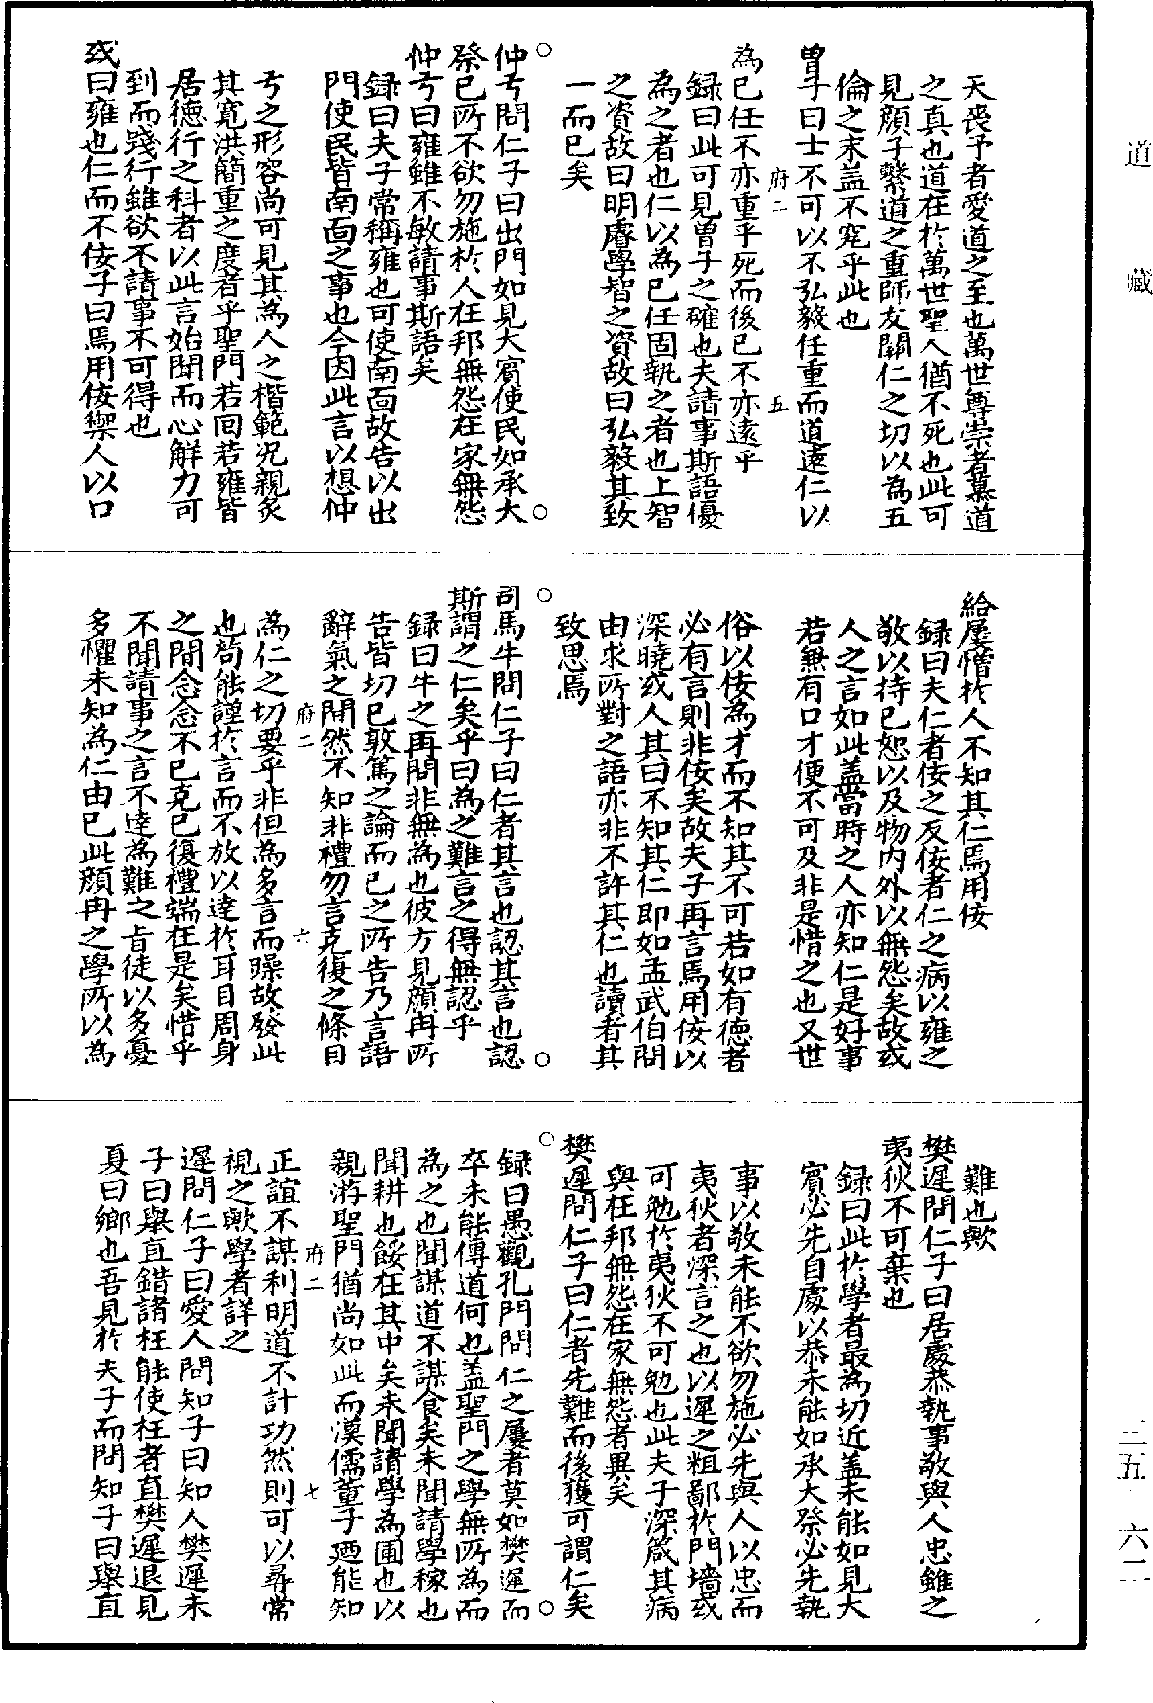 道藏
天喪予者愛道之至也萬世尊崇者慕道
之真也道在於萬世聖人猶不死也此可
見顏子繫道之重師友關仁之切以為五
倫之末盖不究乎此也
曾子曰士不可以不弘毅任重而道遠仁以
府二 五
為已任不亦重乎死而後已不亦遠乎
録曰此可見曾子之確也夫請事斯語優
為之者也仁以為已任固執之者也上智
之資故曰明睿學智之資故曰弘毅其致
一而已矣
○ ○
仲弓問仁子曰出門如見大賓使民如承大
祭已所不欲勿施於人在邦無怨在家無怨
仲弓曰雍雖不敏請事斯語矣
録曰夫子常稱雍也可使南面故告以出
門使民皆南面之事也今因此言以想仲
弓之形容尚可見其為人之楷範况親炙
其寬洪簡重之度者乎聖門若回若雍皆
居德行之科者以此言始聞而心解力可
到而踐行雖欲不請事不可得也
或曰雍也仁而不佞子曰焉用佞禦人以口
給屢憎於人不知其仁焉用佞
録曰夫仁者佞之反佞者仁之病以雍之
敬以待已恕以及物内外以無怨矣故或
人之言如此盖當時之人亦知仁是好事
若無有口才便不可及非是惜之也又世
俗以佞為才而不知其不可若如有德者
必有言則非佞矣故夫子再言焉用佞以
深曉或人其曰不知其仁即如孟武伯問
由求所對之語亦非不許其仁也讀者其
致思焉
○ ○
司馬牛問仁子曰仁者其言也認其言也認
斯謂之仁矣乎曰為之難言之得無認乎
録曰牛之再問非無為也彼方見顏冉所
告皆切已敦篤之論而已之所告乃言語
辭氣之間然不知非禮勿言克復之條目
府二 六
為仁之切要乎非但為多言而躁故發此
也苟能謹於言而不放以達於耳目周身
之間念念不已克已復禮端在是矣惜乎
不聞請事之言不達為難之旨徒以多憂
多懼未知為仁由已此顏冉之學所以為
難也歟
樊遲問仁子曰居處恭執事敬與人忠雖之
夷狄不可棄也
録曰此於學者最為切近盖未能如見大
賓必先自處以恭未能如承大祭必先執
事以敬未能不欲勿施必先與人以忠而
夷狄者深言之也以遲之粗鄙於門墻或
可勉於夷狄不可勉也此夫子深箴其病
與在邦無怨在家無怨者異矣
樊遲問仁子曰仁者先難而後獲可謂仁矣
○ ○
録曰愚觀孔門問仁之屢者莫如樊遲而
卒未能傳道何也盖聖門之學無所為而
為之也聞謀道不謀食矣未聞請學稼也
聞耕也餒在其中矣未聞請學為圃也以
親游聖門猶尚如此而漢儒董子廼能知
府二 七
正誼不謀利明道不計功然則可以尋常
視之歟學者詳之
遲問仁子曰愛人問知子曰知人樊遲未
子曰舉直錯諸枉能使枉者直樊遲退見
夏曰鄉也吾見於夫子而問知子曰舉直
三五 六二